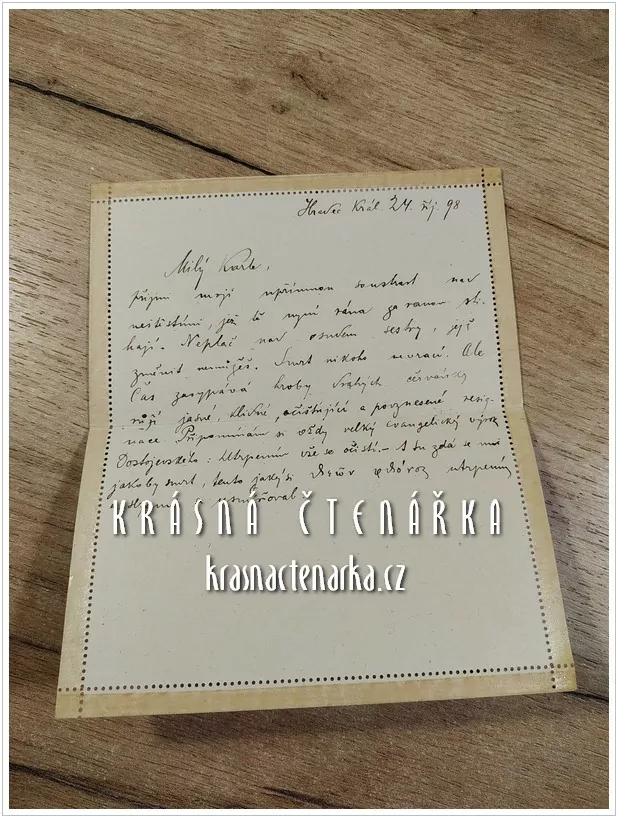 Hradec Král. 24. říj. 98
Milý Karle,
přijmi moji upřímnou soustrast nad
neštěstími, jež tě nyní rána za ranou sti-
hají. Neplač nad osudem sestry, jejž
změniti nemůžeš. Smrt nikoho nevrací. Ale
Čas zasypává hroby drahých
růží jasné, klidné, očišťující a povznesené resig-
nace. Připomínám si vždy velký evangelický výrok
Dostojevského: Utrpením vše se očistí. - A tu zdá se mi
jakoby smrt, tento jakýsi utrpením
KRÁSNÁ ČTENÁŘKA
krasnactenarka.cz